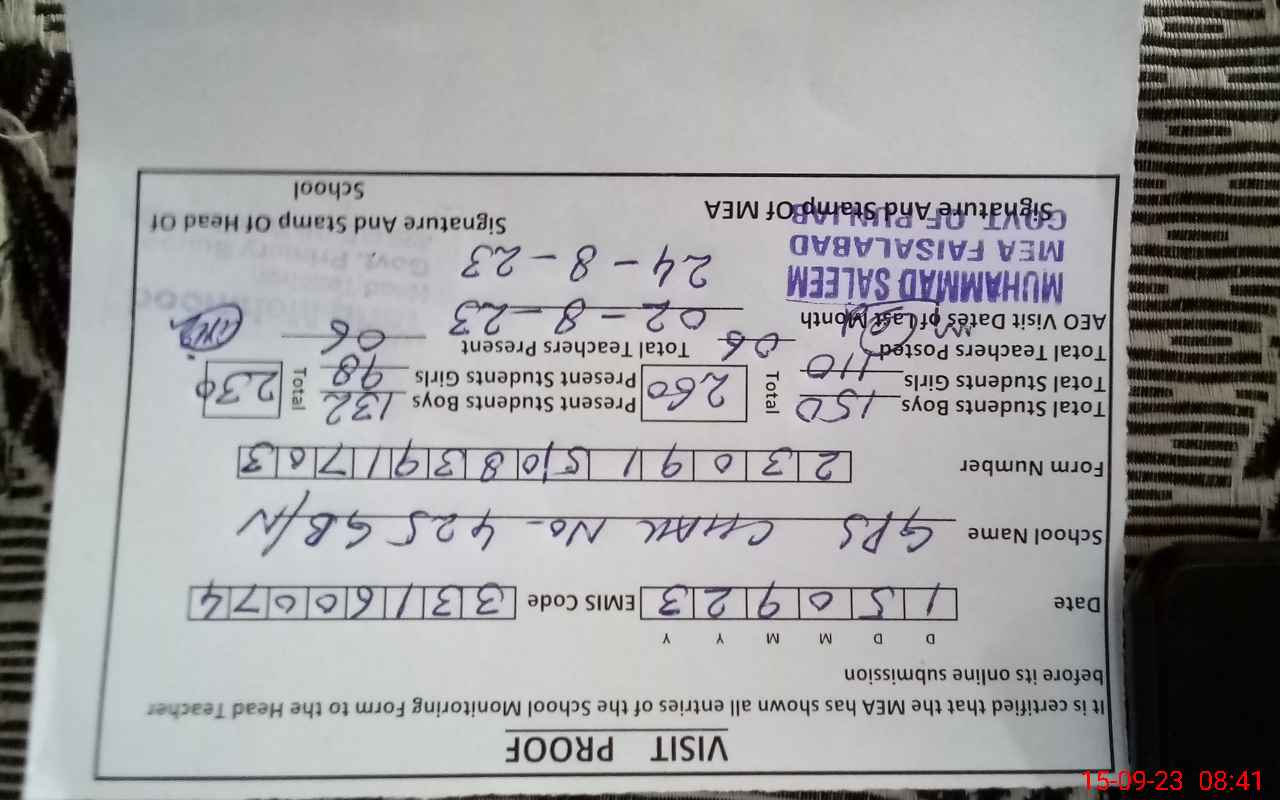 VISIT PROOF
It is certified that the MEA has shown all entries of the School Monitoring Form to the Head Teacher
before its online submission
D D M M Y Y
Date 1 5 0 9 2 3 EMIS Code 3 3 1 6 0 0 7 4
School Name GPS CHAK No. 425 GB/N
Form Number 2 3 0 9 1 5 0 8 3 9 1 7 0 3
Total Students Boys 150 Total 260 Present Students Boys 132 Total 230
Total Students Girls 110 Present Students Girls 98
Total Teachers Posted 06 Total Teachers Present 06
AEO Visit Dates of Last Month 02-8-23
24-8-23
MUHAMMAD SALEEM
MEA FAISALABAD
GOVT. OF PUNJAB
Signature And Stamp Of MEA
Signature And Stamp Of Head Of
School
15-09-23 08:41